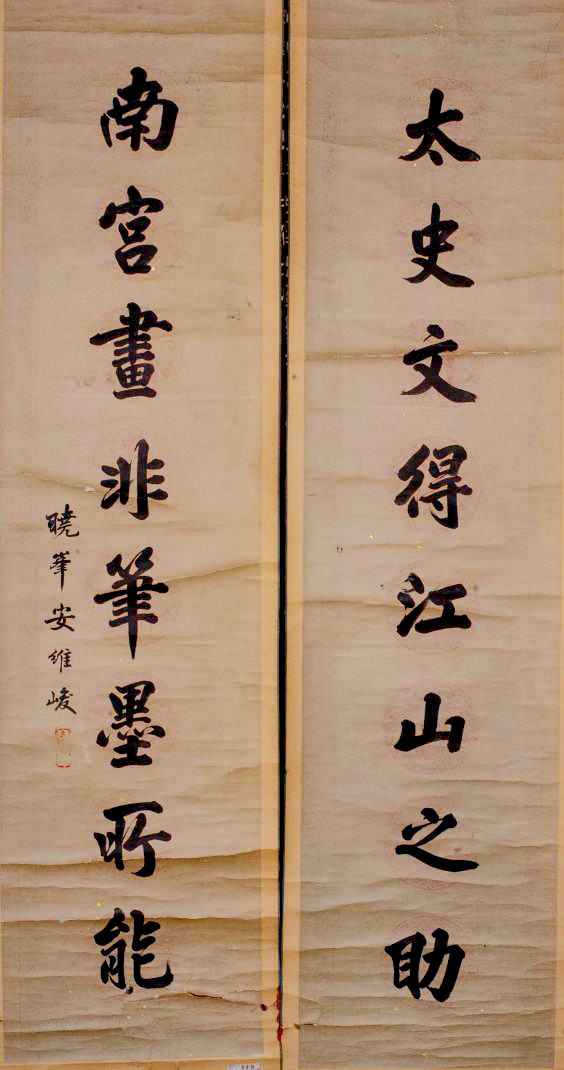 太史文得江山之助
南宮畫非筆墨所能
曉峯安維峻